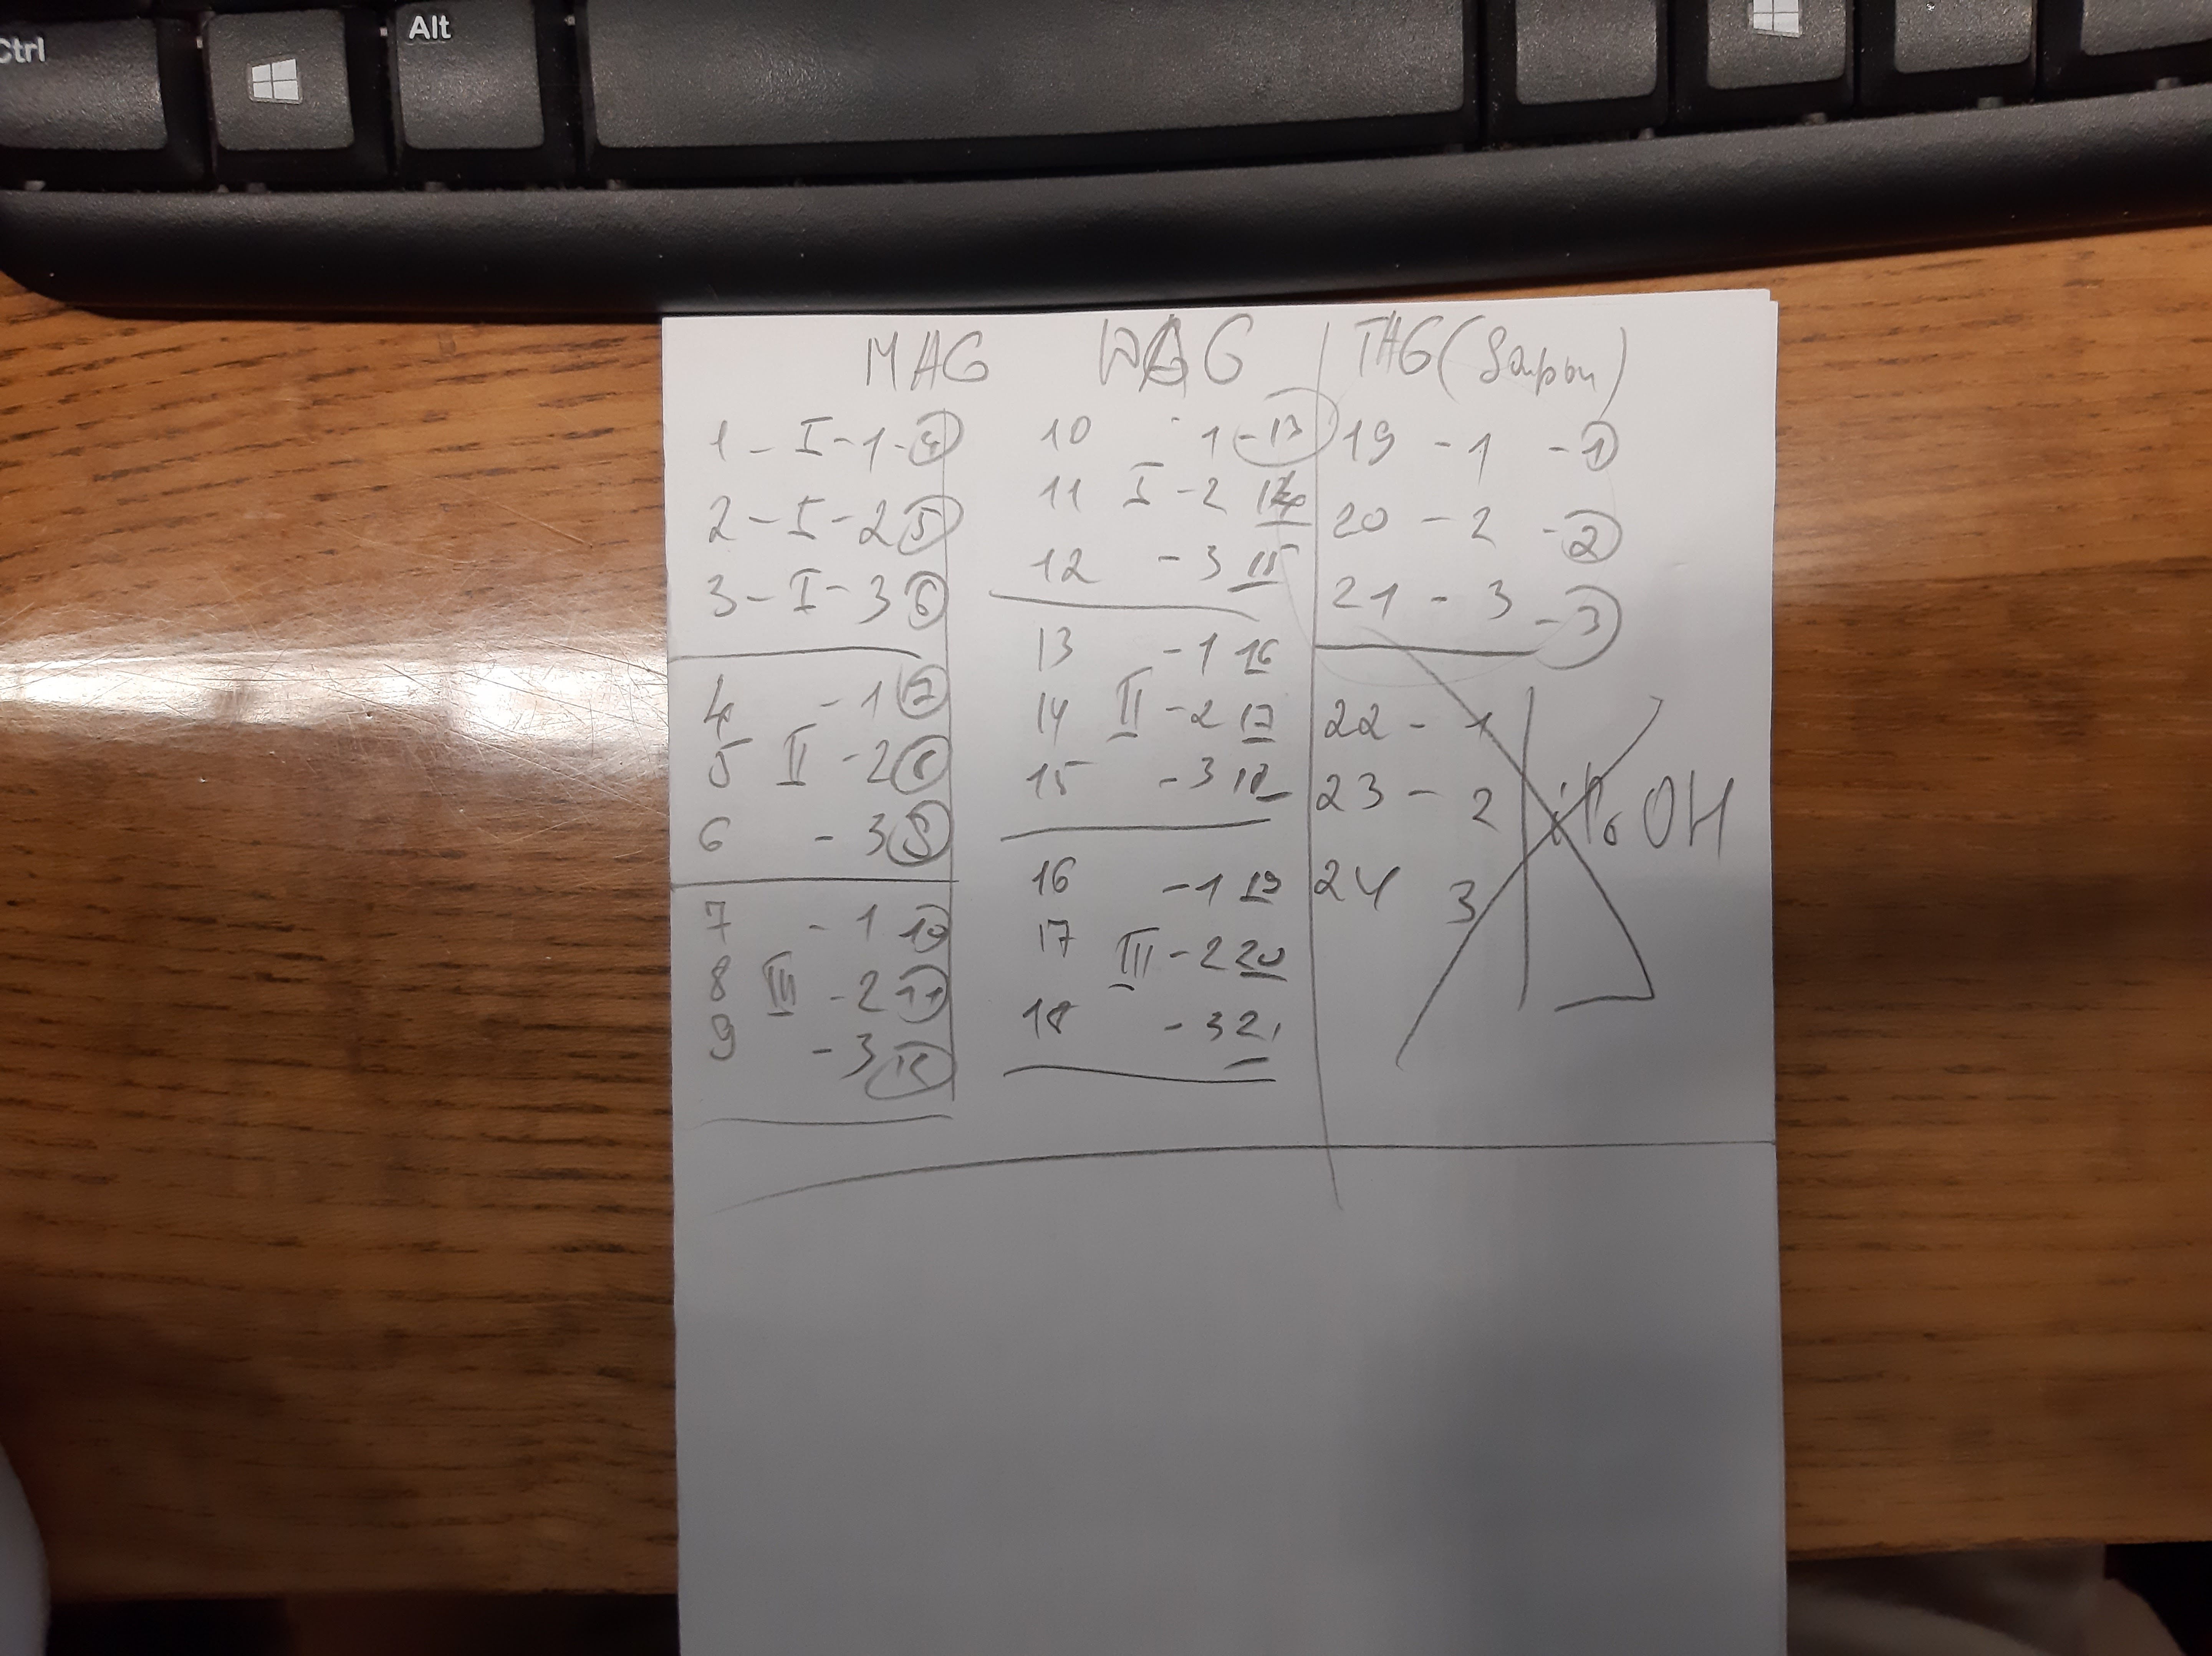 Ctrl
Alt
MAG DAG TAG (Sapon)
1 - I - 1 - 4
2 - I - 2 5
3 - I - 3 6
4 - 1 7
5 II - 2 8
6 - 3 9
7 - 1 10
8 III - 2 11
9 - 3 12
10 1 - 13
11 I - 2 14
12 - 3 15
13 - 1 16
14 II - 2 17
15 - 3 18
16 - 1 19
17 III - 2 20
18 - 3 21
19 - 1 - 1
20 - 2 - 2
21 - 3 - 3
22 - 1
23 - 2
24 3
OH